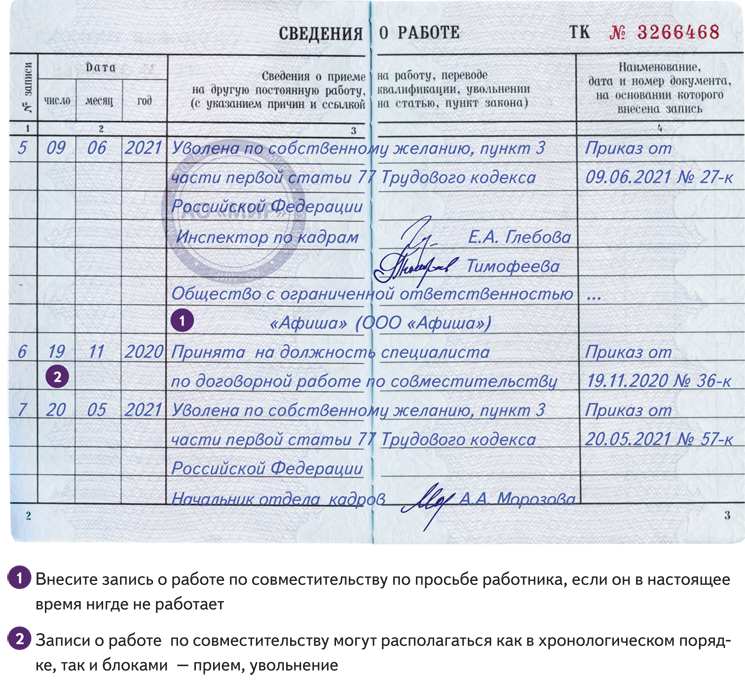 СВЕДЕНИЯ О РАБОТЕ ТК № 3266468
№ записи
Дата
число
месяц
год
Сведения о приеме на работу, переводе
на другую постоянную работу, квалификации, увольнении
(с указанием причин и ссылкой на статью, пункт закона)
Наименование,
дата и номер документа,
на основании которого
внесена запись
1 2 3 4
5 09 06 2021 Уволена по собственному желанию, пункт 3 Приказ от
части первой статьи 77 Трудового кодекса 09.06.2021 № 27-к
Российской Федерации
АО «МИР»
Инспектор по кадрам Е.А. Глебова
Тимофеева
Общество с ограниченной ответственностью ...
1 «Афиша» (ООО «Афиша»)
6 19 11 2020 Принята на должность специалиста Приказ от
2 по договорной работе по совместительству 19.11.2020 № 36-к
7 20 05 2021 Уволена по собственному желанию, пункт 3 Приказ от
части первой статьи 77 Трудового кодекса 20.05.2021 № 57-к
Российской Федерации
Начальник отдела кадров А.А. Морозова
2 3
1 Внесите запись о работе по совместительству по просьбе работника, если он в настоящее
время нигде не работает
2 Записи о работе по совместительству могут располагаться как в хронологическом поряд-
ке, так и блоками — прием, увольнение